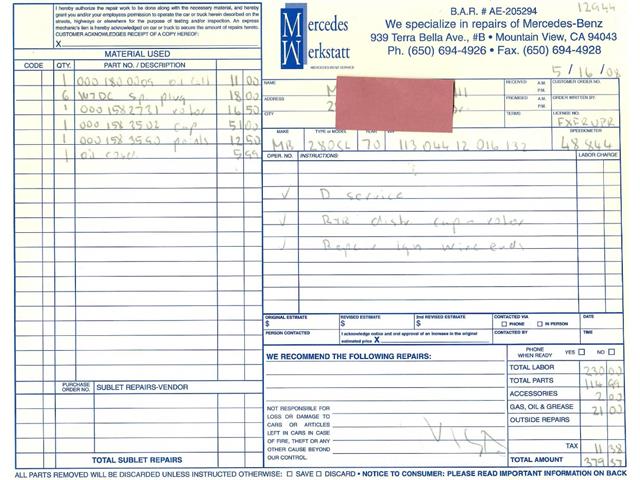 I hereby authorize the repair work to be done along with the necessary material, and
grant you and/or your employees permission to operate the car or truck herein described on the
streets, highways or elsewhere for the purpose of testing and/or inspection. An express
mechanic's lien is hereby acknowledged on car or truck to secure the amount of repairs hereto.
CUSTOMER ACKNOWLEDGES RECEIPT OF A COPY HEREOF:
X
Mercedes
Werkstatt
MERCEDES-BENZ SERVICE
B.A.R. # AE-205294
12944
We specialize in repairs of Mercedes-Benz
939 Terra Bella Ave., #B • Mountain View, CA 94043
Ph. (650) 694-4926 • Fax. (650) 694-4928
5/16/08
MATERIAL USED
CODE QTY. PART NO. / DESCRIPTION
1 000 180 0009 11 00
6 W7DC Sp. plug 18 00
1 000 158 2731 rotor 16 50
1 000 158 3502 cap 51 00
1 000 158 3590 points 12 50
1 5 99
NAME
ADDRESS
CITY
RECEIVED A.M. P.M.
PROMISED A.M. P.M.
ORDER WRITTEN BY:
TERMS
LICENSE NO.
MAKE TYPE or MODEL YEAR SPEEDOMETER
MB 280SL 70 113 044 12 016 132 48844
OPER. NO. INSTRUCTIONS: LABOR CHARGE
√ D service
√ R&R distr cap & rotor
√ Repair ign wire ends
ORIGINAL ESTIMATE $
REVISED ESTIMATE $
2nd REVISED ESTIMATE $
CONTACTED VIA
☐ PHONE ☐ IN PERSON
DATE
PERSON CONTACTED
I acknowledge notice and oral approval of an increase in the original
estimated price X
CONTACTED BY
TIME
WE RECOMMEND THE FOLLOWING REPAIRS:
PHONE WHEN READY YES ☐ NO ☐
TOTAL LABOR 230 00
TOTAL PARTS 114 99
ACCESSORIES 2 00
GAS, OIL & GREASE 21 00
OUTSIDE REPAIRS
TAX 11 38
TOTAL AMOUNT 379 37
PURCHASE ORDER NO. SUBLET REPAIRS-VENDOR
NOT RESPONSIBLE FOR
LOSS OR DAMAGE TO
CARS OR ARTICLES
LEFT IN CARS IN CASE
OF FIRE, THEFT OR ANY
OTHER CAUSE BEYOND
OUR CONTROL.
VISA
TOTAL SUBLET REPAIRS
ALL PARTS REMOVED WILL BE DISCARDED UNLESS INSTRUCTED OTHERWISE: ☐ SAVE ☐ DISCARD • NOTICE TO CONSUMER: PLEASE READ IMPORTANT INFORMATION ON BACK